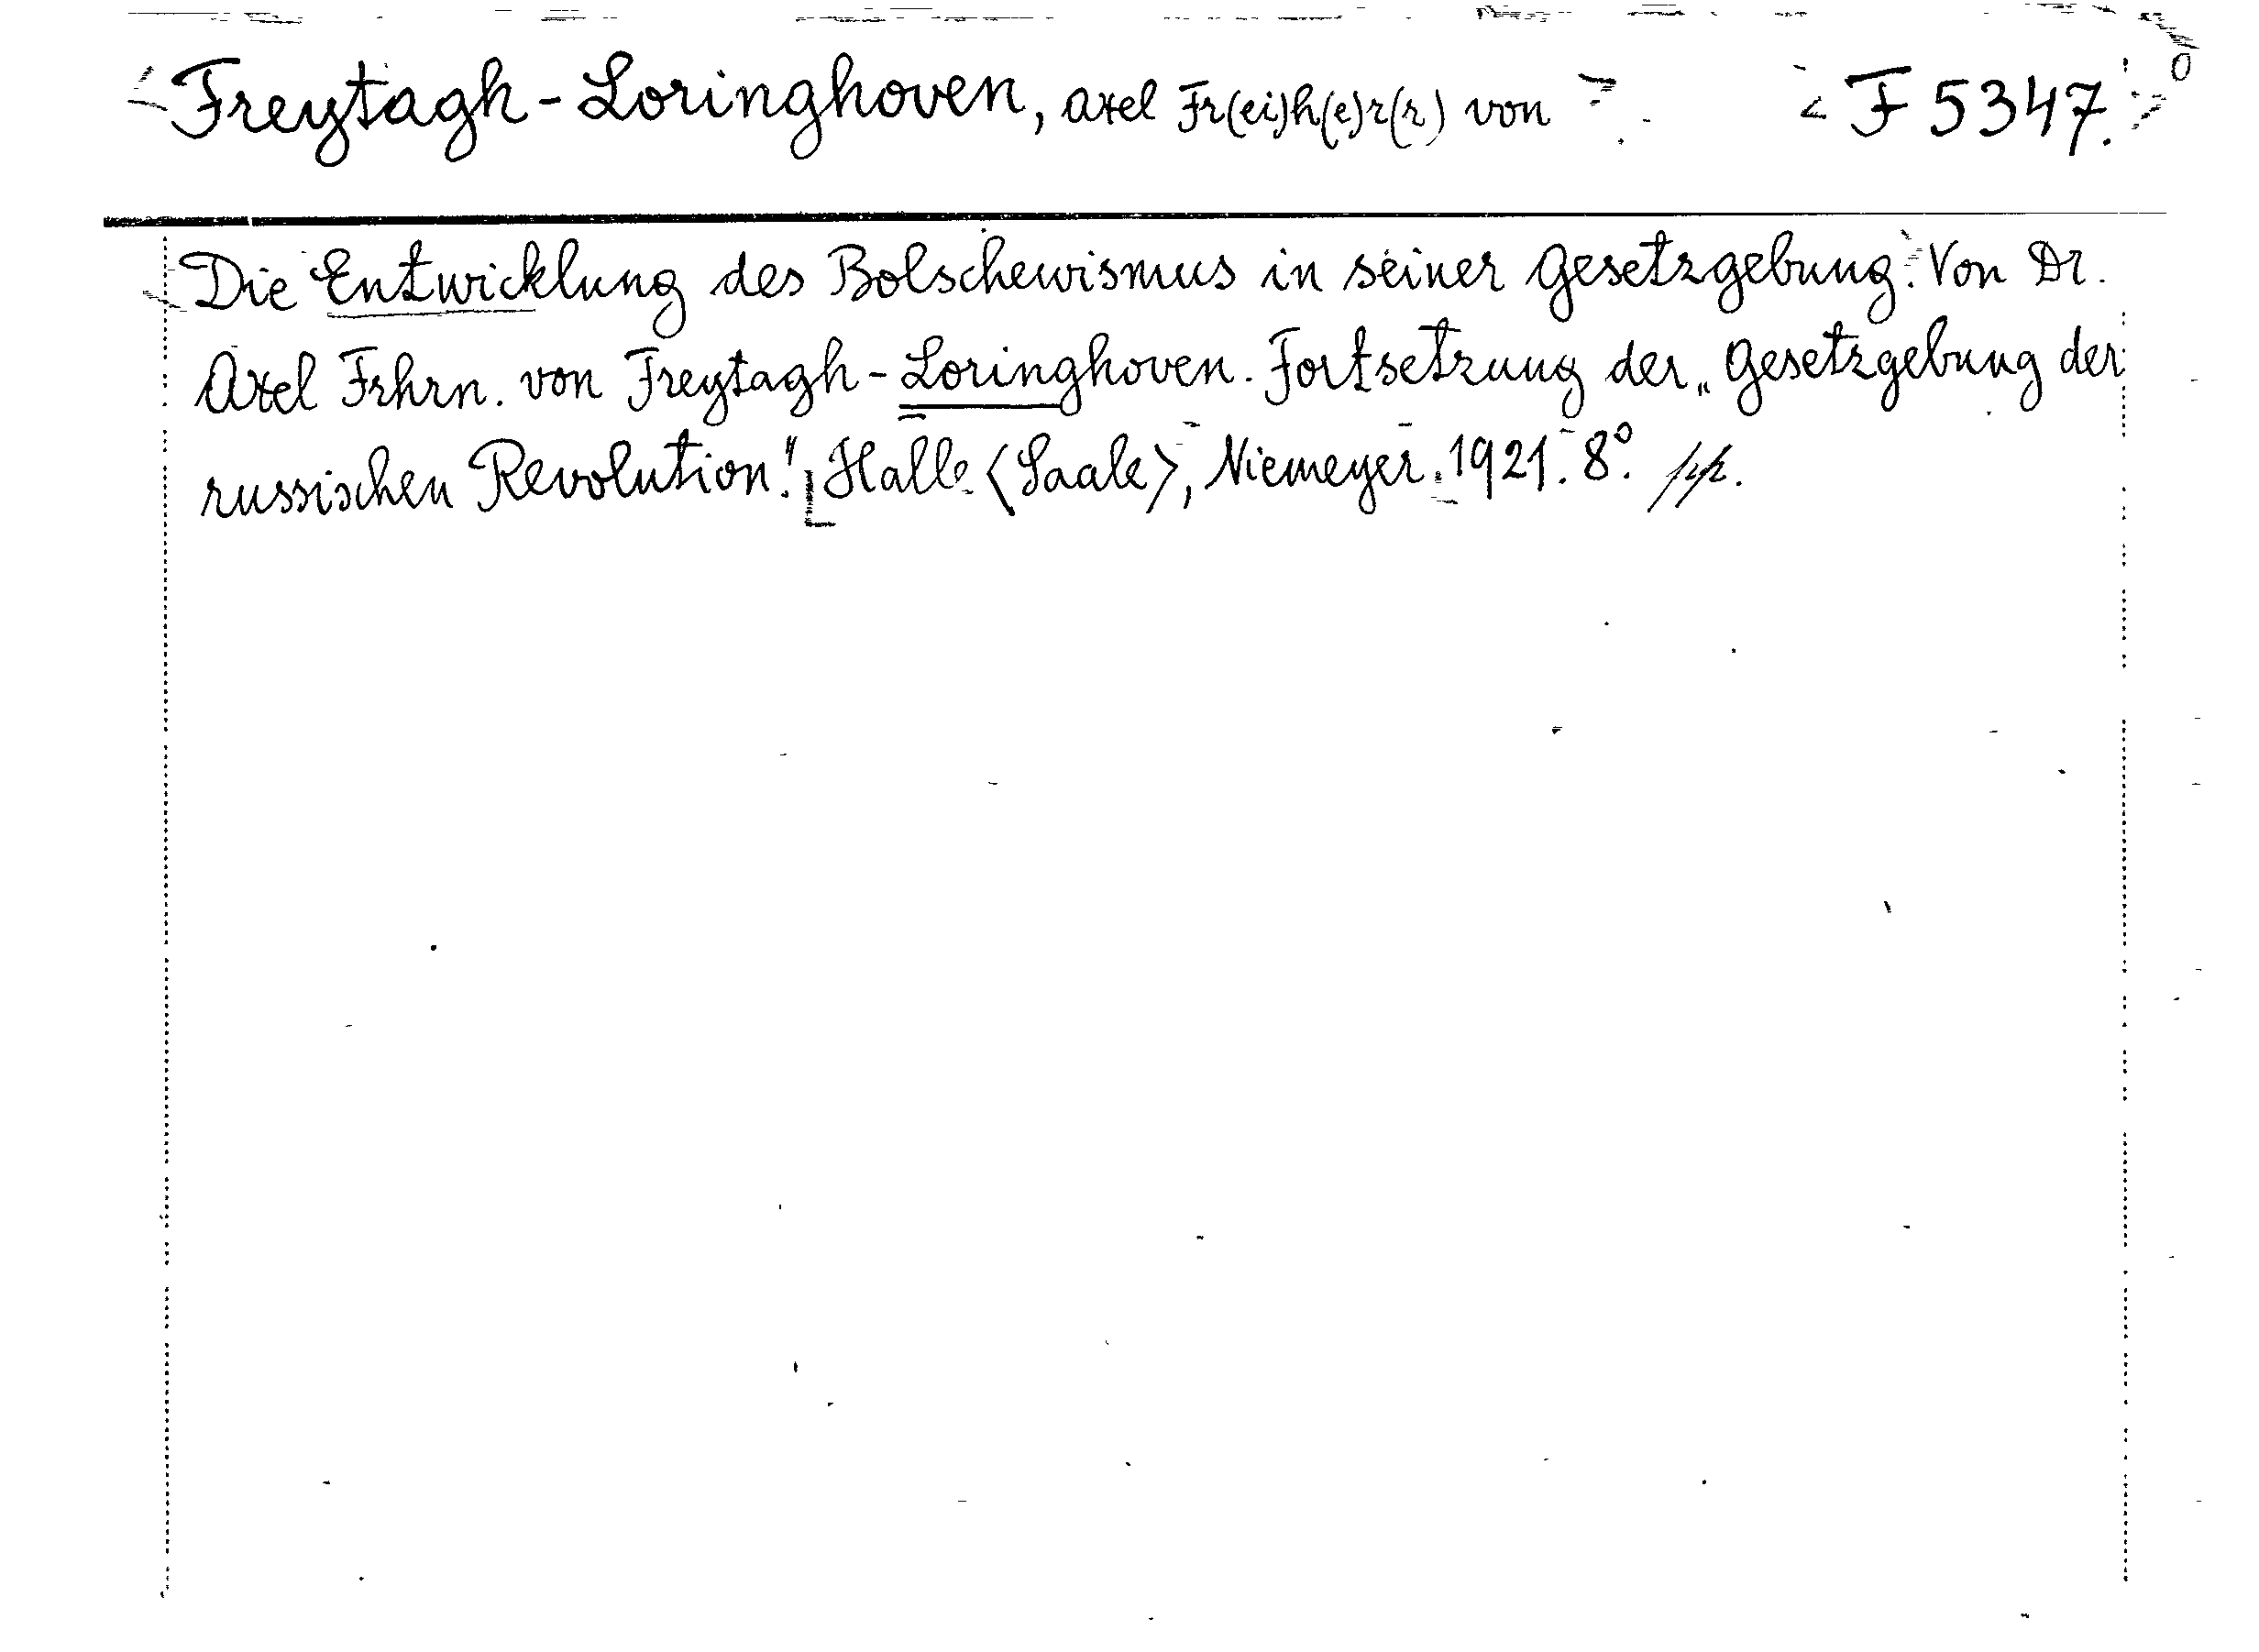 Freytagh-Loringhoven, Axel Fr(ei)h(e)r(r) von F 5347.
Die Entwicklung des Bolschewismus in seiner Gesetzgebung. Von Dr.
Axel Frhrn. von Freytagh-Loringhoven. Fortsetzung der „Gesetzgebung der
russischen Revolution". Halle (Saale), Niemeyer. 1921. 8°. pp.